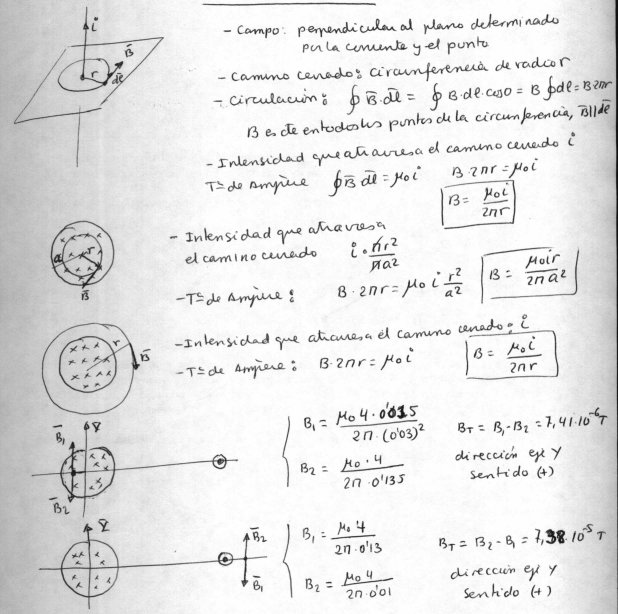 i
B̄
r
d̄l
- Campo: perpendicular al plano determinado
por la corriente y el punto
- Camino cerrado: circunferencia de radio r
- Circulación: ∮ B̄·d̄l = ∮ B·dl·cos0 = B ∮dl = B·2πr
B es cte en todos los puntos de la circunferencia, B̄||d̄l
- Intensidad que atraviesa el camino cerrado i
Tª de Ampère ∮B̄ d̄l = μ₀i B·2πr = μ₀i
B = μ₀i / 2πr
a
r
B̄
- Intensidad que atraviesa
el camino cerrado i · πr² / πa²
- Tª de Ampère: B·2πr = μ₀ i r²/a² B = μ₀ir / 2πa²
r
B̄
- Intensidad que atraviesa el camino cerrado: i
- Tª de Ampère: B·2πr = μ₀i B = μ₀i / 2πr
B̄₁
Y
B̄₂
B₁ = μ₀ 4 · 0'015 / 2π·(0'03)²
B₂ = μ₀·4 / 2π·0'135
B_T = B₁-B₂ = 7,41·10⁻⁶ T
dirección eje Y
sentido (+)
Y
B̄₂
B̄₁
B₁ = μ₀ 4 / 2π·0'13
B₂ = μ₀ 4 / 2π·0'01
B_T = B₂-B₁ = 7,38·10⁻⁵ T
dirección eje Y
sentido (+)